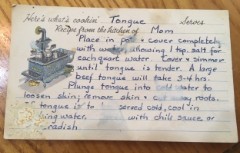 Here's what's cookin' Tongue Serves
Recipe from the kitchen of Mom
Place in pot & cover completely
with water, allowing 1 tsp. salt for
each quart water. Cover & simmer
until tongue is tender. A large
beef tongue will take 3-4 hrs.
Plunge tongue into cold water to
loosen skin; remove skin & cut away roots.
tongue is to served cold, cool in
ing water. with chili sauce or
radish.